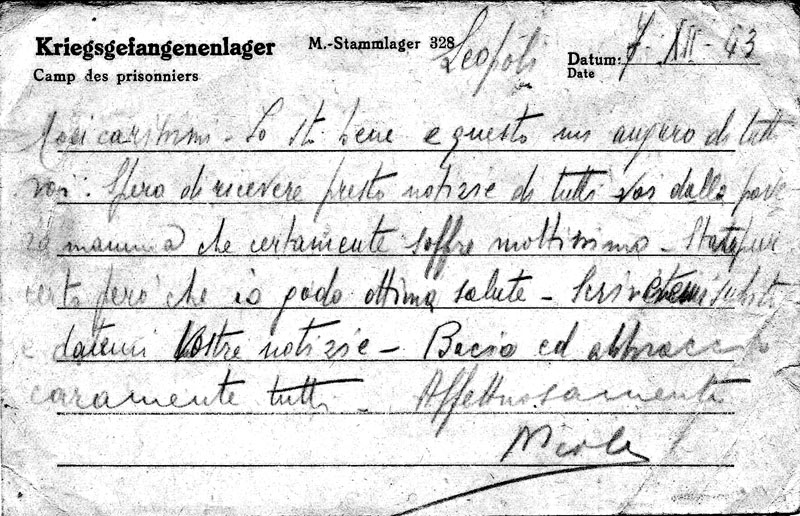 Kriegsgefangenenlager M.-Stammlager 328 Leopoli Datum: 7-XII-43
Camp des prisonniers Date
Miei carissimi - Io sto bene e questo mi auguro di tutti
voi. Spero di ricevere presto notizie di tutti voi dalla pove
ra mamma che certamente soffre moltissimo - State pur
certi però che io godo ottima salute - Scrivetemi subito
e datemi Vostre notizie - Bacio ed abbraccio
caramente tutti - Affettuosamente